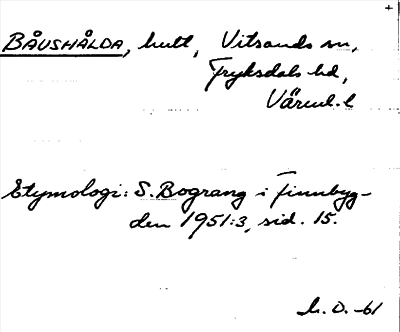 BÅVSHÅLDA, hult, Vitsands sn,
Fryksdals hd,
Värml. l
Etymologi: S. Bograng i Finnbyg-
den 1951:3, sid. 15.
h. O. -61